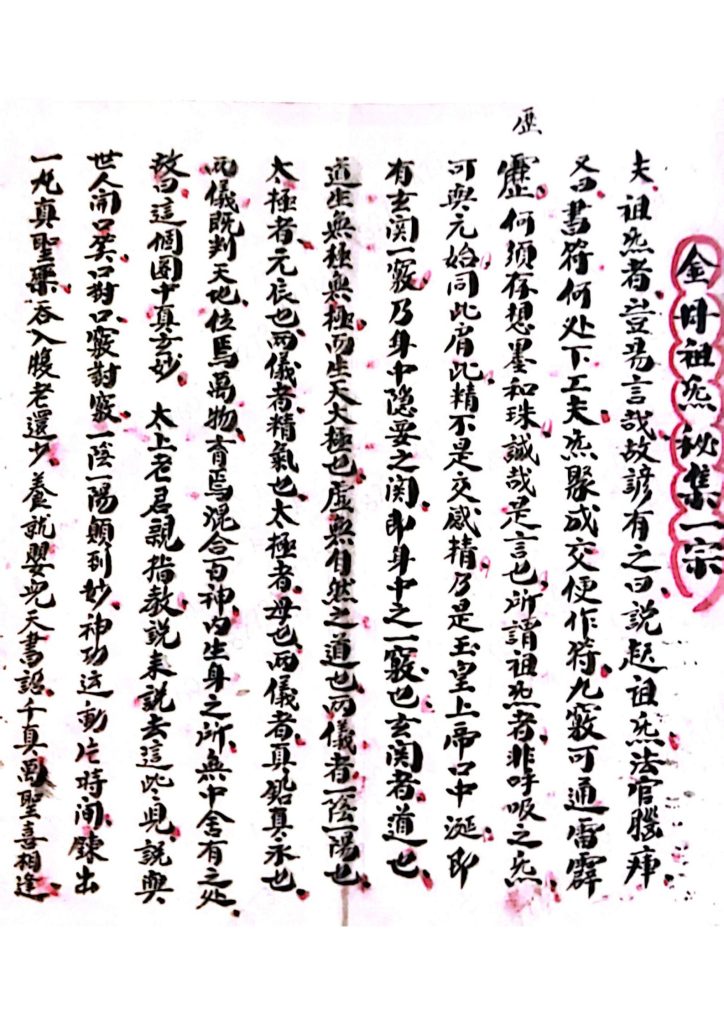 金母祖炁秘集一宗
夫祖炁者豈易言哉故諺有之曰説起祖炁法官腦痺
又曰書符何处下工夫炁聚成交便作符九竅可通雷霹
靂何須存想墨和珠誠哉是言也所謂祖炁者非呼吸之炁
可與元始同此肩此精不是交感精乃是玉皇上帝口中涎即
有玄関一竅乃身中隐妥之関即身中之一竅也玄関者道也
道生無極無極而生天太極也虚無自然之道也两儀者一陰一陽也
太極者元辰也两儀者精氣也太極者母也两儀者真鉛真汞也
两儀既判天地位焉萬物育焉混合百神内生身之所無中含有之处
故曰這個圈中真玄妙 太上老君親指教説来説去這些兒説與
世人開口笑口對口竅對竅一陰一陽顛到妙神功运動片時間錬出
一九真聖藥吞入腹老還少養就嬰兒天書詔千真萬聖喜相逢